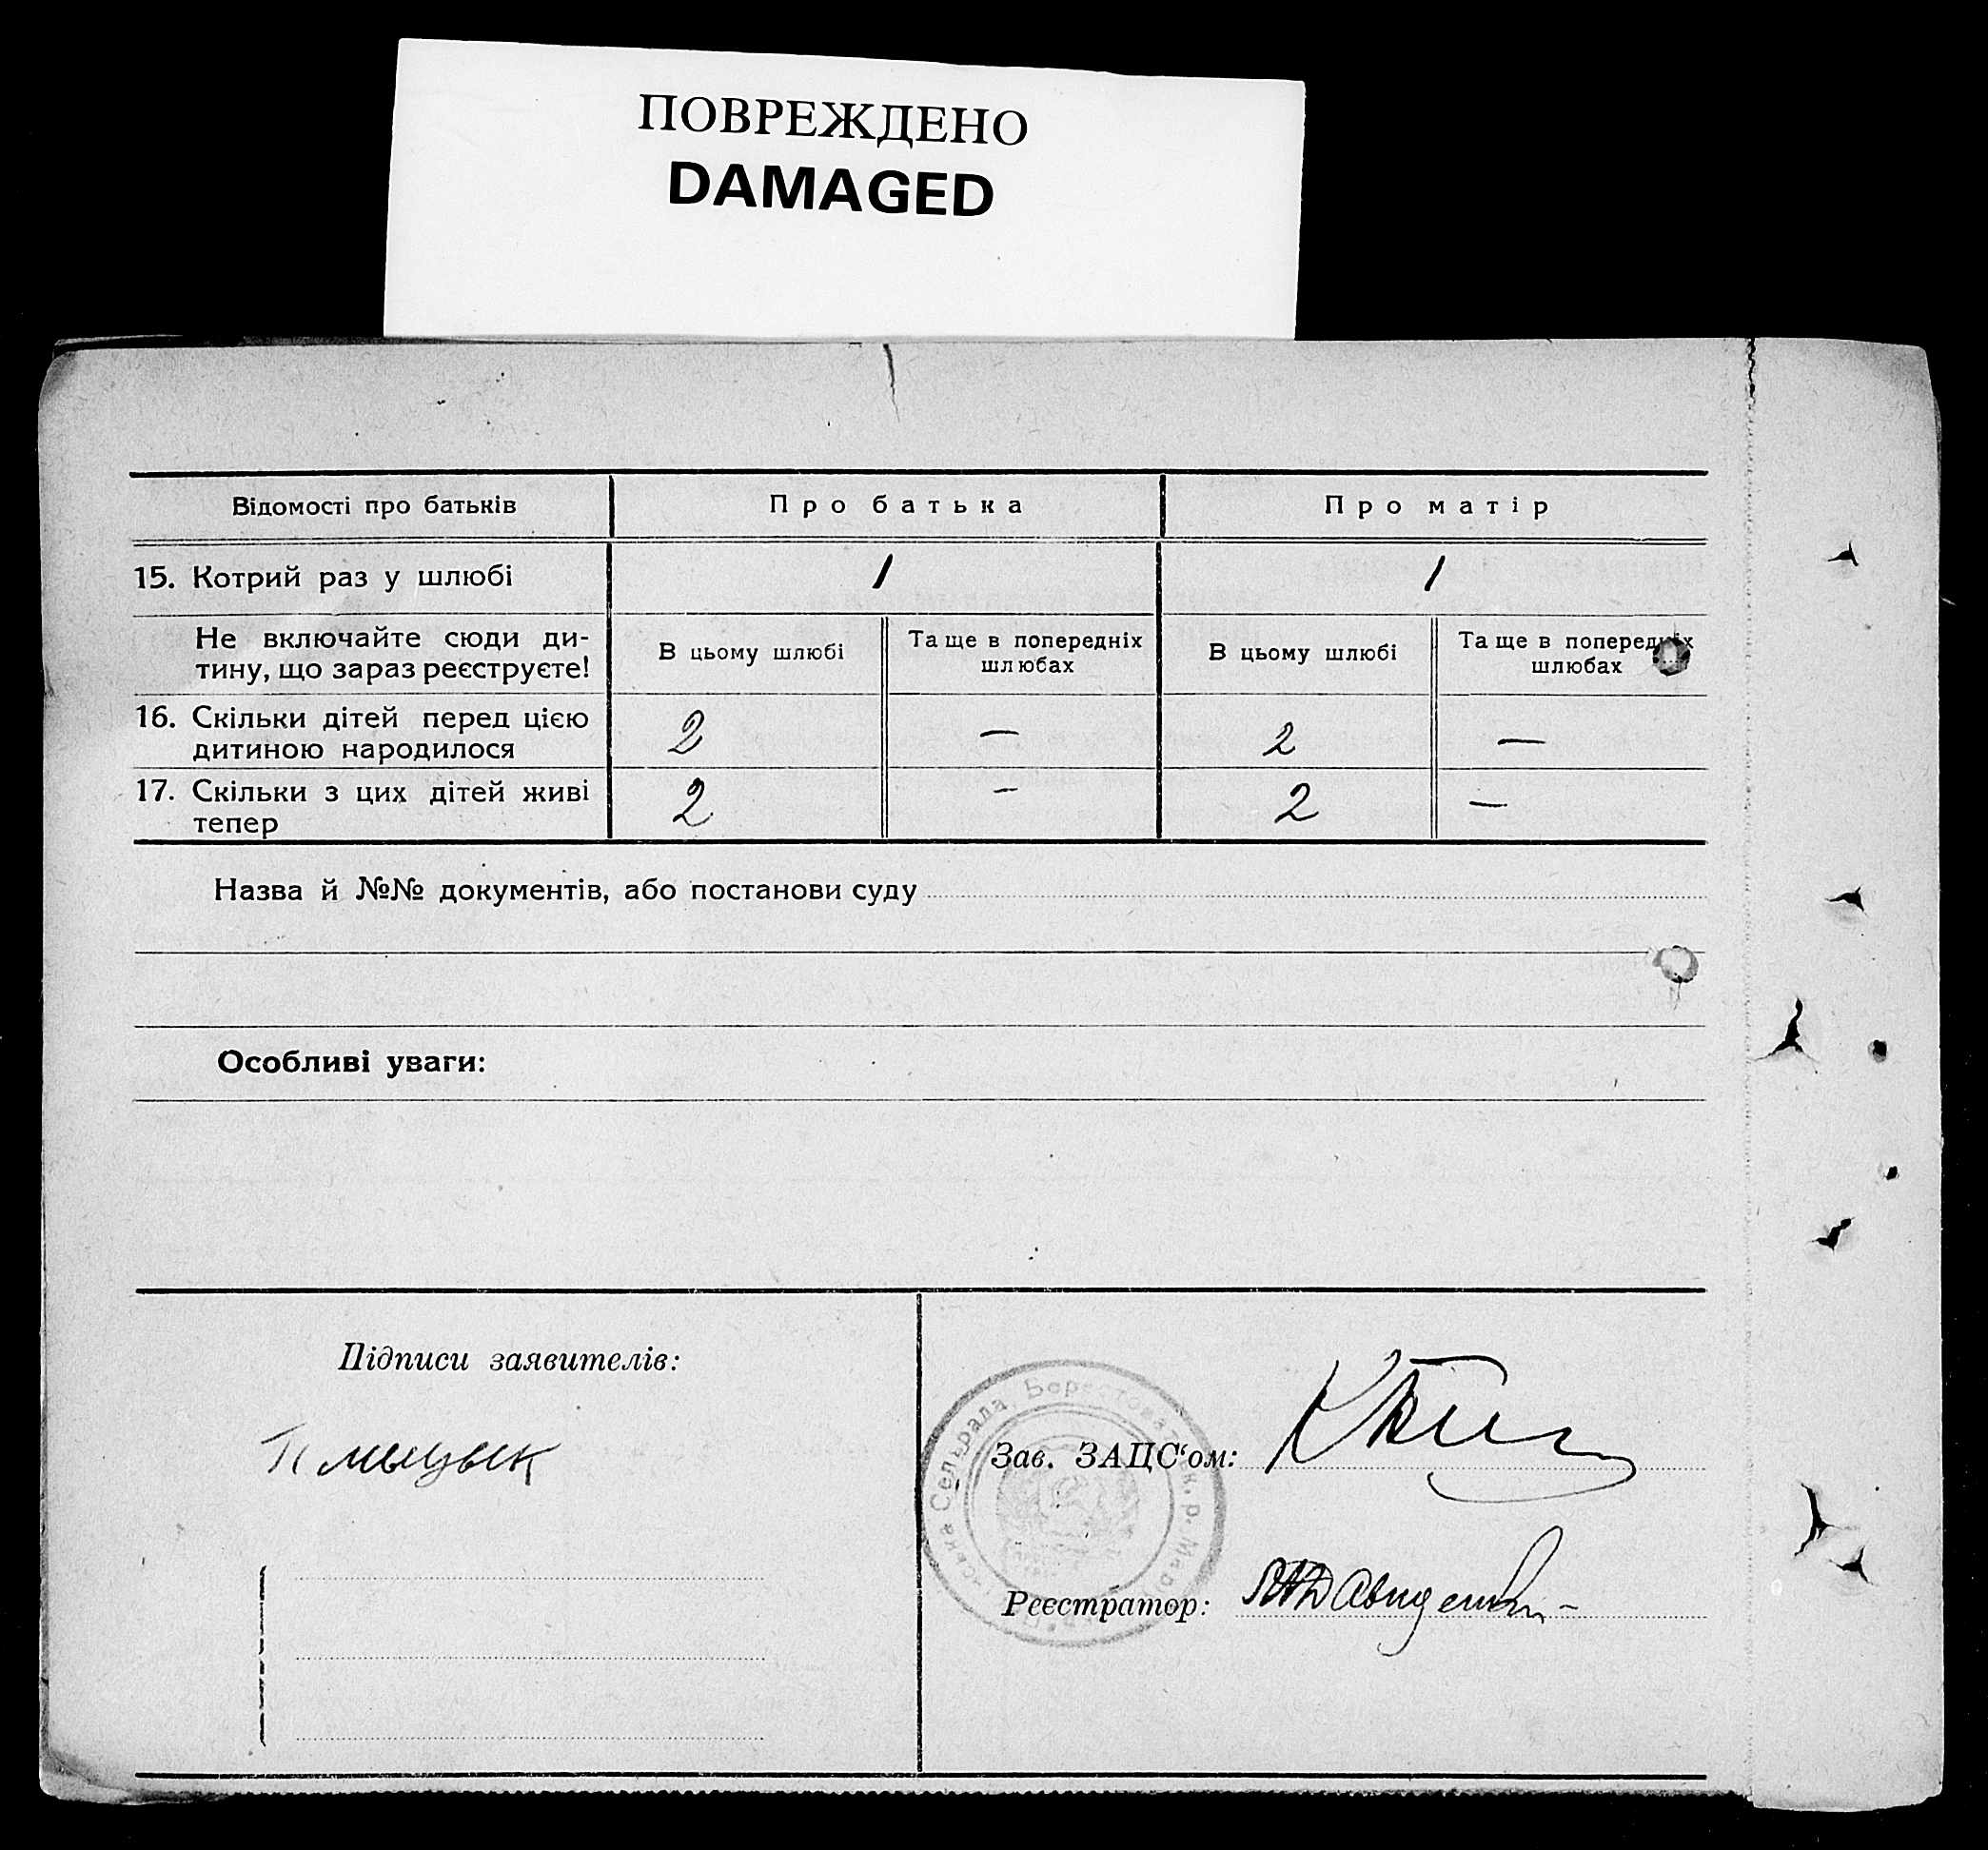 ПОВРЕЖДЕНО
DAMAGED
Відомості про батьків
Про батька
Про матір
15. Котрий раз у шлюбі
1
1
Не включайте сюди ди-
тину, що зараз реєструєте!
В цьому шлюбі
Та ще в попередніх
шлюбах
В цьому шлюбі
Та ще в попередніх
шлюбах
16. Скільки дітей перед цією
дитиною народилося
2
—
2
—
17. Скільки з цих дітей живі
тепер
2
—
2
—
Назва й №№ документів, або постанови суду
Особливі уваги:
Підписи заявителів:
Зав. ЗАЦС‘ом:
Реєстратор:
Сельрада, Берестова